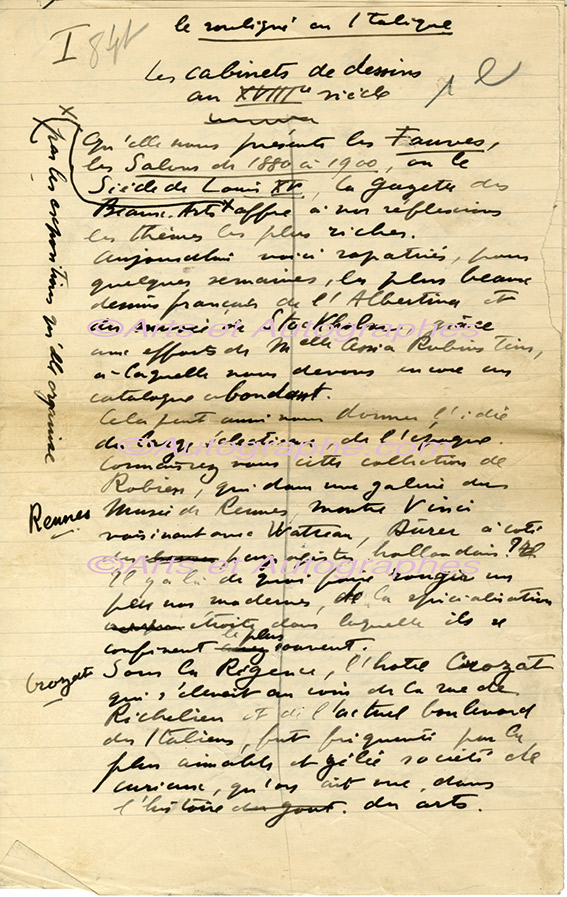 le souligné en Italique
I
Les cabinets de dessins
au XVIIIe siècle
Qu'elle nous présente les Fauves,
les Salons de 1880 à 1900, ou le
Siècle de Louis XV, la gazette des
Beaux-Arts x offre à nos réflexions
x par les expositions qu'elle organise
les thèmes les plus riches.
Aujourd'hui voici rapatriés, pour
quelques semaines, les plus beaux
dessins français de l'Albertina et
du musée de Stockholm, grâce
aux efforts de Melle Assia Rubinstein,
à laquelle nous devons encore un
catalogue abondant.
Cela peut aussi nous donner l'idée
du large éclectisme de l'époque.
Connaissez vous cette collection de
Robien, qui dans une galerie du
Rennes
Musée de Rennes, montre Vinci
voisinant avec Watteau, Dürer à côté
des paysagistes hollandais ?
Il y a là de quoi faire rougir un
peu nos modernes, de la spécialisation
étroite dans laquelle ils se
confinent le plus souvent.
Crozat
Sous la Régence, l'hôtel Crozat
qui s'élevait au coin de la rue de
Richelieu et de l'actuel boulevard
des Italiens, fut fréquenté par la
plus aimable et zélée société de
curieux, qu'on ait vue, dans
l'histoire du gout. des arts.
©Arts et Autographes
©Autographe.com
©Arts et Autographes